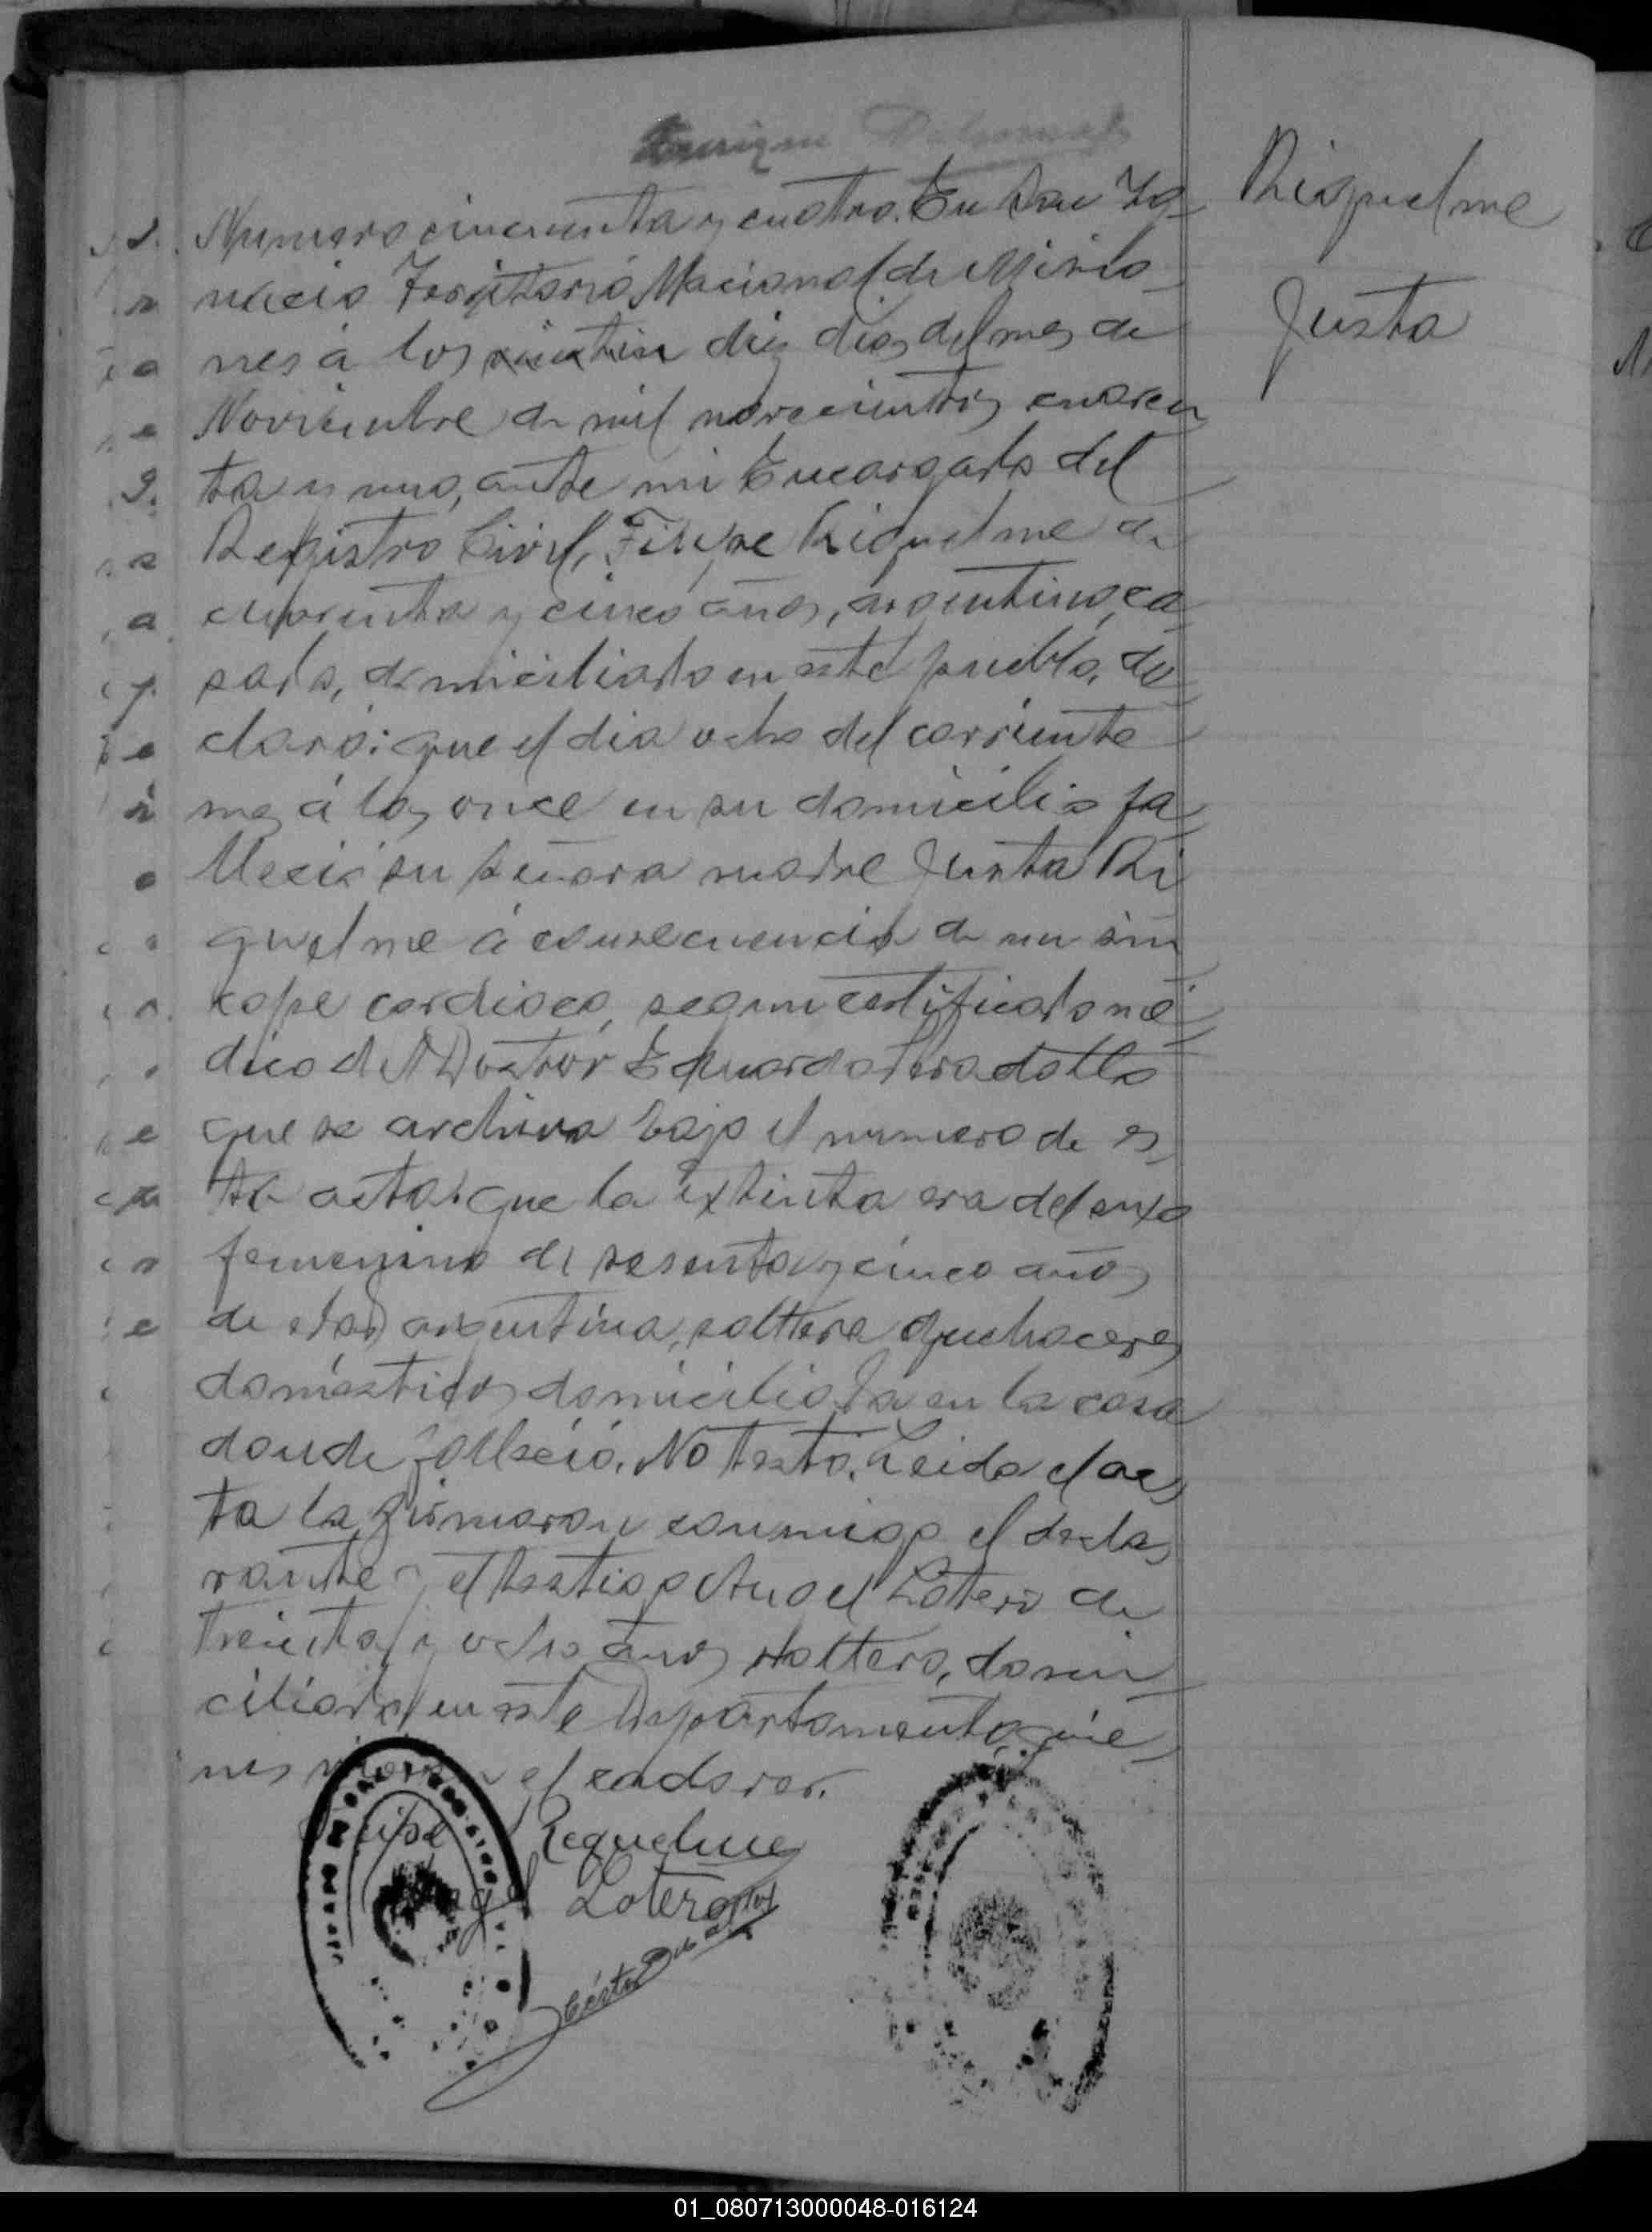 Riquelme
Justa
Numero cincuenta y cuatro. En San Ig
nacio Territorio Nacional de Misio
nes á los diez dias del mes de
Noviembre de mil novecientos cuaren
ta y uno, ante mi Encargado del
Registro Civil, Felipe Riquelme de
cuarenta y cinco años, argentino, ca
sado, domiciliado en este pueblo, de
claró: que el dia ocho del corriente
mes á las once en su domicilio fa
lleció su señora madre Justa Ri
quelme á consecuencia de un sin
cope cardiaco, segun certificado mé
dico del Doctor Eduardo
que se archiva bajo el numero de es
ta acta: que la extinta era del sexo
femenino de sesenta y cinco años
de edad argentina, soltera quehaceres
domésticos domiciliada en la casa
donde falleció. No testó. Leida el ac
ta la firmaron conmigo el decla
rante y el testigo Angel Lotero de
treinta y ocho años soltero, domi
ciliado en este Departamento quie
nes el cadaver.
Requelme
Angel Lotero
01_080713000048-016124